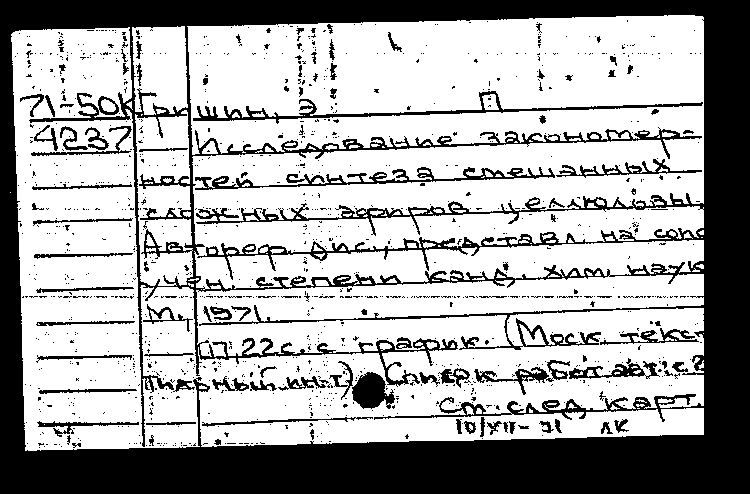 71-50К Гришин, Э П
4237 Исследование закономер-
ностей синтеза смешанных
сложных эфиров целлюлозы.
Автореф. дис., представл. на соис
учен. степени канд. хим. наук
М., 1971.
17,22 с. с график. (Моск. текст
ильный ин-т) Список работ авт.: с 2
См. след. карт.
10/XII-71 ЛК